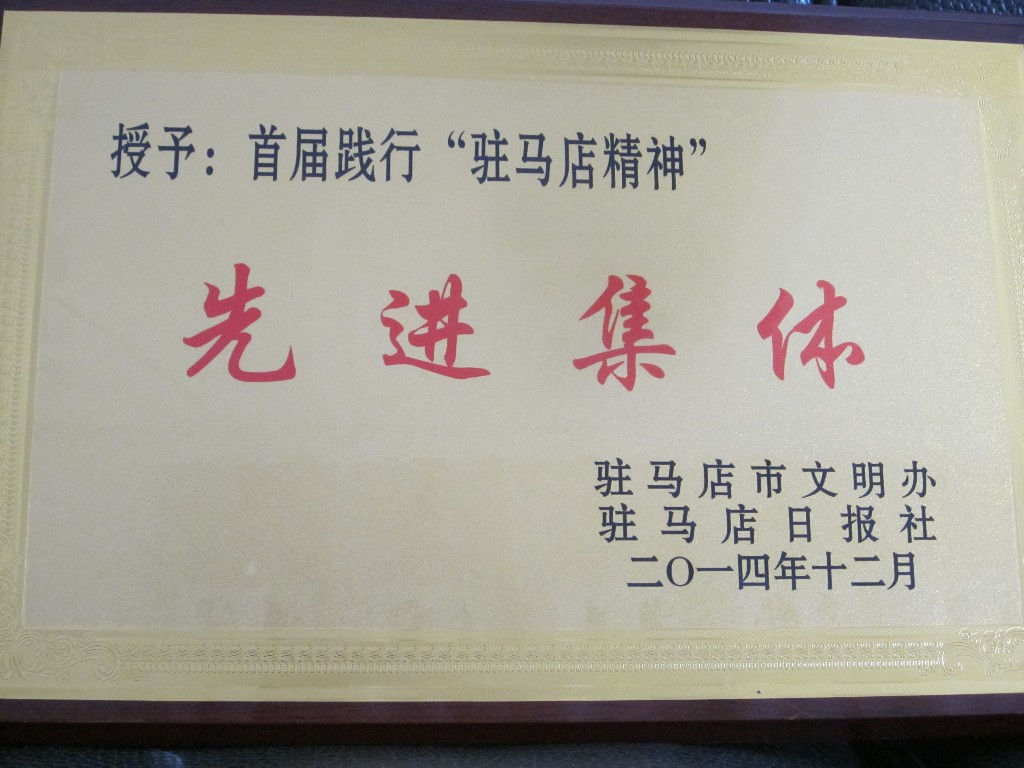 授予：首届践行“驻马店精神”
先进集体
驻马店市文明办
驻马店日报社
二〇一四年十二月